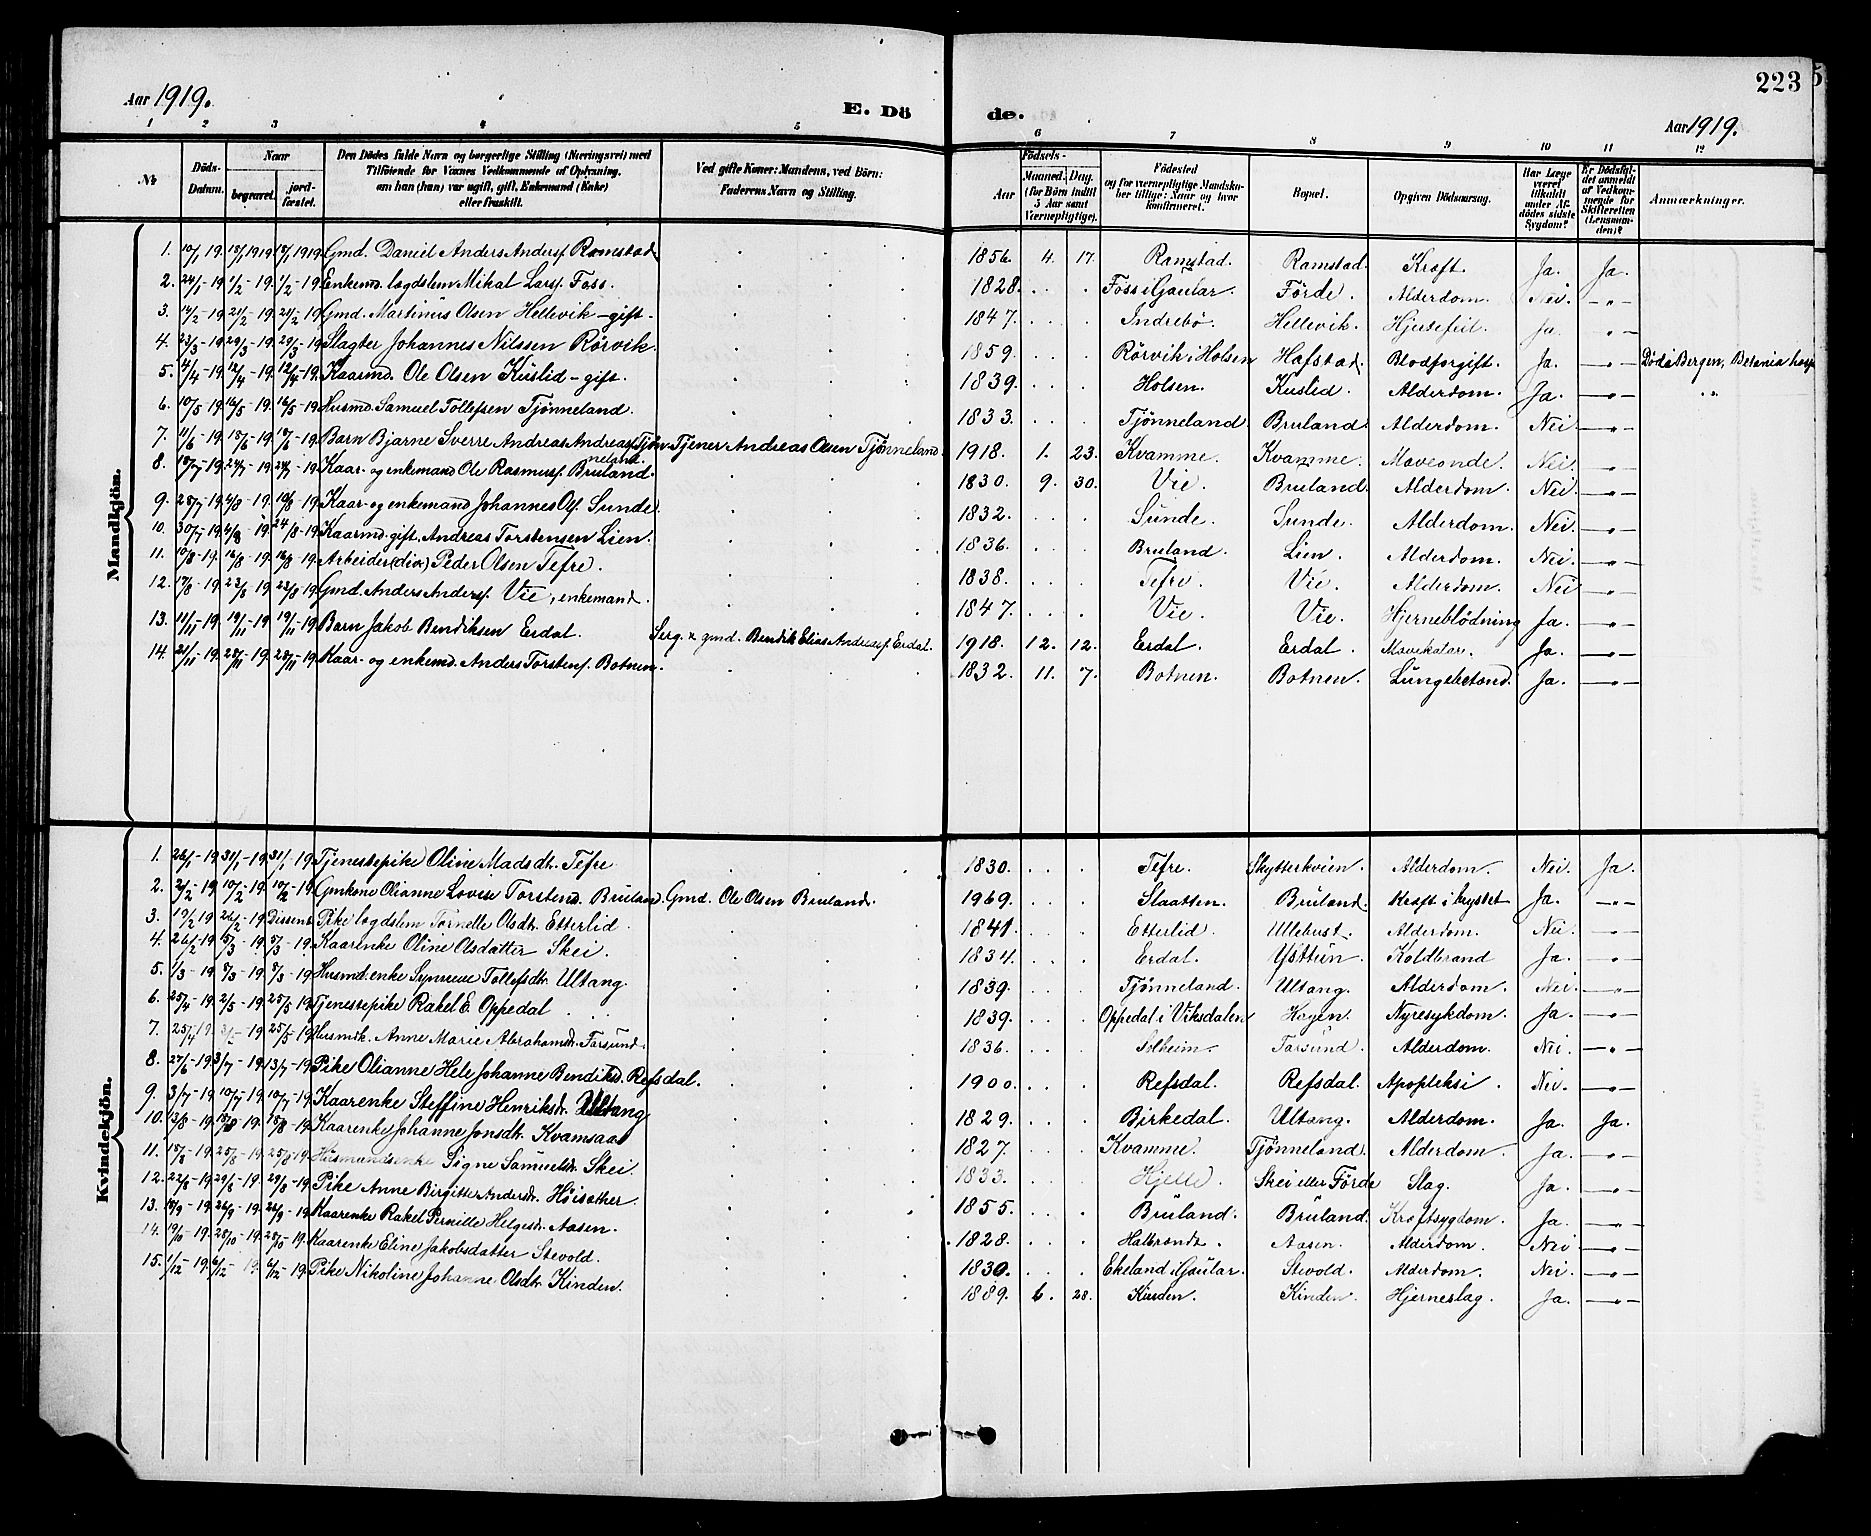 Aar 1919.
E. Dö
de.
223
Aar 1919.
1 2 3 4 5 6 7 8 9 10 11 12
№ Döds-Datum. Naar begravet. jordfæstet. Den Dödes fulde Navn og borgerlige Stilling (Næringsvei) med Tilföiende for Voxnes Vedkommende af Oplysning, om han (hun) var ugift, gift, Enkemand (Enke) eller fraskilt. Ved gifte Koner: Mandens, ved Börn: Faderens Navn og Stilling. Födsels- Aar Maaned. Dag. (for Börn indtil 5 Aar samt Værnepligtige). Födested og for værnepligtige Mandskaber tillige: Naar og hvor konfirmeret. Bopæl. Opgiven Dödsaarsag. Har Læge været tilkaldt under Afdödes sidste Sygdom? Er Dödsfaldet anmeldt af Vedkommende for Skifteretten (Lensmanden)? Anmærkninger.
Mandkjön.
1. 10/1 19. 18/1 1919 18/1 1919. Gmd. Daniel Anders Andersf. Ramstad 1856. 4. 17. Ramstad. Ramstad. Kræft. Ja. Ja.
2. 24/1 - 19. 1/2 - 19. 1/2 - 19. Enkemd. lægdslem Mikal Larsf. Foss. 1828. Foss i Gaular. Förde. Alderdom. Nei. -"-
3. 14/2 - 19. 21/2 - 19. 21/2 - 19. Gmd. Martinus Olsen Hellevik - gift. 1847. Indrebö. Hellevik. Hjertefeil. Ja. -"-
4. 23/3 - 19. 29/3 - 19. 29/3 - 19. Slagter Johannes Nilssen Rörvik. 1859. Rörvik i Holsen Hafstad. Blodforgift. Ja. -"- Död i Bergen, Betania hosp
5. 4/4 - 19. 12/4 - 19. 12/4 - 19. Kaarmd. Ole Olsen Kuslid - gift. 1839. Holsen. Kuslid. Alderdom. Ja. -"-
6. 10/5 - 19. 16/5 - 19. 16/5 - 19. Husmd. Samuel Tollefsen Tjönneland. 1833. Tjönneland. Bruland. Alderdom. Nei. -"-
7. 11/6 - 19. 18/6 - 19. 18/6 - 19. Barn Bjarne Sverre Andreas Andreasf. Tjönneland. Tjener Andreas Olsen Tjönneland. 1918. 1. 23. Kvamme. Kvamme. Maveonde. Nei. -"-
8. 18/7 - 19. 24/7 - 19. 24/7 - 19. Kaar- og enkemand Ole Rasmusf. Bruland. 1830. 9. 30. Vie. Bruland. Alderdom. Nei. -"-
9. 28/7 - 19. 4/8 - 19. 10/8 - 19. Kaar- og enkemand Johannes Olf. Sunde. 1832. Sunde. Sunde. Alderdom. Nei. -"-
10. 30/7 - 19. 4/8 - 19. 24/8 - 19. Kaarmd. gift, Andreas Torstensen Lien. 1836. Bruland. Lien. Alderdom. Nei. -"-
11. 10/8 - 19. 16/8 - 19. 16/8 - 19. Arbeider (div.) Peder Olsen Tefre. 1838. Tefre. Vie. Alderdom. Nei -"-
12. 17/8 - 19. 23/8 - 19. 23/8 - 19. Gmd. Anders Andersf. Vie, enkemand. 1847. Vie. Vie. Hjerneblödning Ja. -"-
13. 11/11 - 19. 19/11 - 19. 19/11 - 19. Barn Jakob Bendiksen Erdal. Serg. & gmd. Bendik Elias Andreasf. Erdal. 1918. 12. 12. Erdal. Erdal. Mavekatar. Ja. -"-
14. 21/11 - 19. 28/11 - 19. 28/11 - 19. Kaar- og enkemd. Anders Torstens. Botnen. 1832. 11. 7. Botnen. Botnen. Lungebetænd. Ja. -"-
Kvindekjön.
1. 26/1 - 19. 31/1 - 19. 31/1 - 19. Tjenestepike Oline Madsdt. Tefre 1830. Tefre. Skytterkvien. Alderdom. Nei. Ja.
2. 2/2 - 19 10/2 - 19. 10/2 - 19. Gmkone Olianne Lovise Torstend. Bruland. Gmd. Ole Olsen Bruland. 1969. Slaatten. Bruland. Kræft i brystet Ja. -"-
3. 19/2 19 26/2 - 19 Dissent. Pike lægdslem Tornette Olsdt. Etterlid. 1841. Etterlid. Ullebust. Alderdom. Nei. -"-
4. 26/2 - 19. 15/3 - 19. 5/3 - 19. Kaarenke Oline Olsdatter Skei. 1834. Erdal. Ysttun. Koldbrand Ja. -"-
5. 1/3 - 19. 8/3 - 19. 8/3 - 19. Husmd. enke Synneve Tollefsdt. Ultang. 1839. Tjönneland. Ultang. Alderdom. Nei. -"-
6. 25/4 - 19. 2/5 - 19. 25/5 19. Tjenestepike Rakel E. Oppedal 1839. Oppedal i Viksdalen Hagen. Nyresykdom. Ja. -"-
7. 25/4 - 19. 3/5 - 19 25/5 - 19. Husmk. Anne Marie Abrahamsdt. Farsund. 1836. Solheim. Farsund. Alderdom. Nei. -"-
8. 27/6 - 19. 3/7 - 19. 13/7 - 19. Pike Olianne Hele Johanne Bendiksd. Refsdal. 1900. Refsdal. Refsdal. Apopleksi. Nei. -"-
9. 3/7 - 19. 10/7 - 19. 10/7 - 19. Kaarenke Steffine Henriksdt. Ultang 1829. Birkedal. Ultang. Alderdom. Ja. Ja.
10. 13/8 - 19. 18/8 - 19. 18/8 - 19. Kaarenke Johanne Jonsdt. Kvamsaas 1827. Kvamme. Tjönneland. Alderdom. Ja. -"-
11. 18/8 - 19. 25/8 - 19. 25/8 19. Husmandsenke Signe Samuelsdt. Skei. 1833. Hjelle. Skei eller Förde Slag. Ja. -"-
12. 22/8 - 19. 29/8 - 19. 29/8 - 19. Pike Anne Birgitte Andersdt. Höisæther. 1855. Bruland. Bruland. Kræftsygdom. Ja. -"-
13. 18/9 - 19. 26/9 - 19. 26/9 - 19. Kaarenke Rakel Pernille Helgesdt. Aasen. 1828. Halbrendt. Aasen. Alderdom. Nei -"-
14. 19/10 - 19. 28/10 - 19. 28/10 - 19. Kaarenke Eline Jakobsdatter Stevold. 1830. Ekeland i Gaular. Stevold. Alderdom. Nei. -"-
15. 1/12 - 19. 6/12 - 19. 6/12 - 19. Pike Nikoline Johanne Olsdt. Kinden. 1889. 6. 28. Kinden. Kinden. Hjerneslag. Ja. -"-